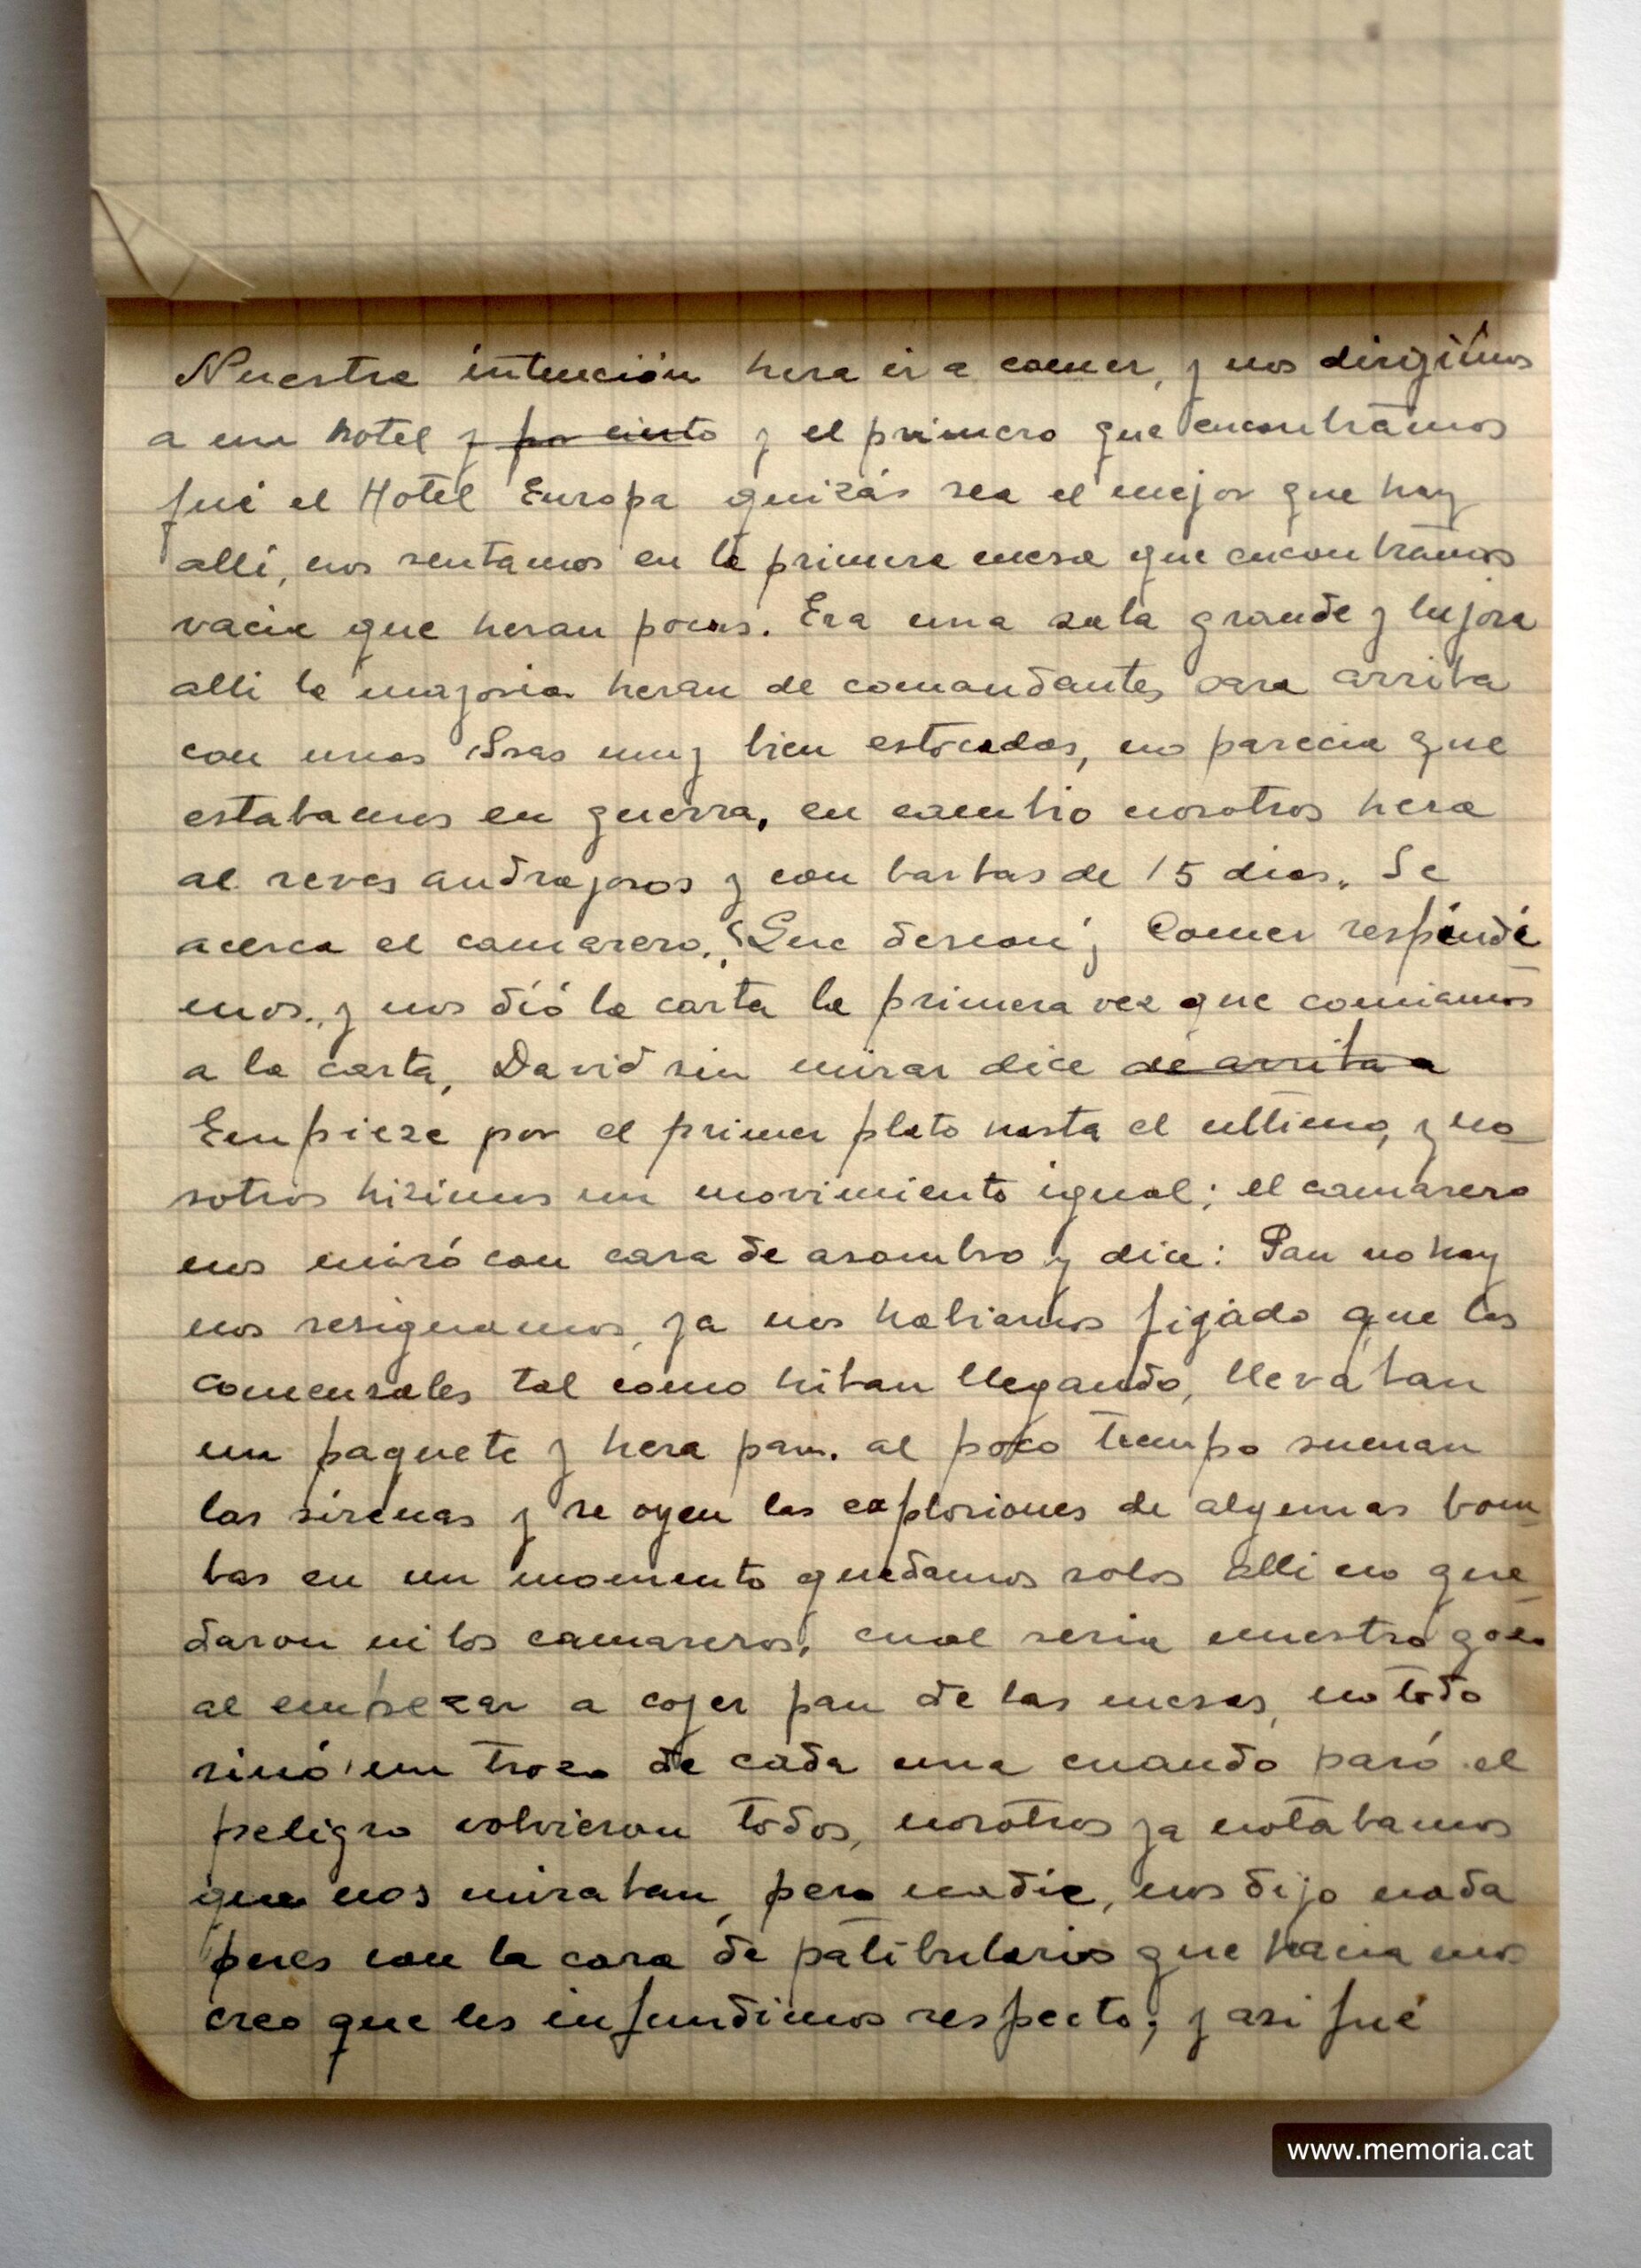 Nuestra intención hera ir a comer, y nos dirigimos
a un hotel y por cierto y el primero que encontramos
fué el Hotel Europa quizás sea el mejor que hay
alli, nos sentamos en la primera mesa que encontramos
vacia que heran pocas. Era una sala grande y lujosa
alli la mayoria heran de comandantes para arriba
con unas Sras muy bien estocadas, no parecia que
estabamos en guerra, en cambio nosotros hera
al reves andrajosos y con barbas de 15 dias. Se
acerca el camarero, ¿Que desean? Comer respondi
mos, y nos dió la carta la primera vez que comiamos
a la carta, David sin mirar dice de arriba a
Empieze por el primer plato hasta el ultimo, y no
sotros hizimos un movimiento igual; el camarero
nos miró con cara de asombro y dice: Pan no hay
nos resignamos, ya nos habiamos figado que los
comensales tal como hiban llegando, llevaban
un paquete y hera pan. al poco tiempo suenan
las sirenas y se oyen las explosiones de algunas bom
bas en un momento quedamos solos alli no que
daron ni los camareros, cual seria nuestro gozo
al empezar a cojer pan de las mesas, no todo
sinó un trozo de cada una cuando paró el
peligro volvieron todos, nosotros ya notabamos
que nos miraban, pero nadie, nos dijo nada
pues con la cara de patibularios que haciamos
creo que les infundimos respecto; y asi fué
www.memoria.cat